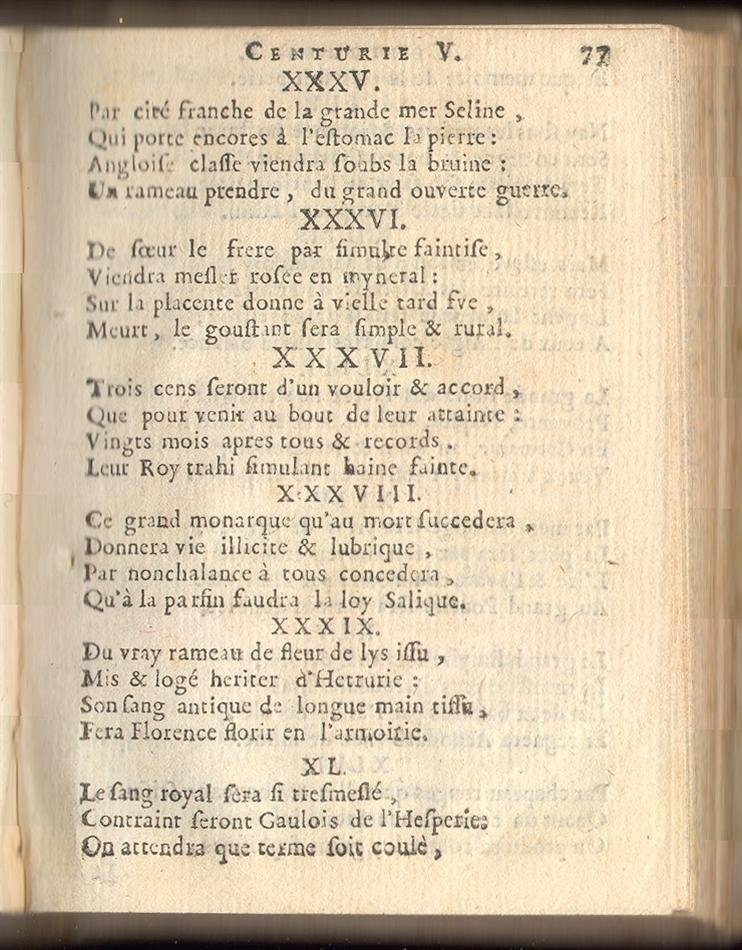 CENTURIE V. 77
XXXV.
Par cité franche de la grande mer Seline,
Qui porte encores à l'estomac la pierre:
Angloise classe viendra soubs la bruine:
Un rameau prendre, du grand ouverte guerre.
XXXVI.
De sœur le frere par simulte faintise,
Viendra mesler rosee en myneral:
Sur la placente donne à vielle tard fve,
Meurt, le goustant sera simple & rural.
XXXVII.
Trois cens seront d'un vouloir & accord,
Que pour venir au bout de leur attainte:
Vingts mois apres tous & records.
Leur Roy trahi simulant haine fainte.
XXXVIII.
Ce grand monarque qu'au mort succedera,
Donnera vie illicite & lubrique,
Par nonchalance à tous concedera,
Qu'à la parfin faudra la loy Salique.
XXXIX.
Du vray rameau de fleur de lys issu,
Mis & logé heriter d'Hetrurie:
Son sang antique de longue main tissu,
Fera Florence florir en l'armoirie.
XL.
Le sang royal sera si tresmeslé,
Contraint seront Gaulois de l'Hesperie:
On attendra que terme soit coulé,